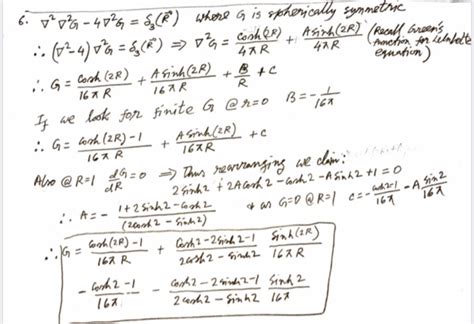 6. ∇²∇²G - 4∇²G = δ₃(R⃗) where G is spherically symmetric
∴ (∇²-4)∇²G = δ₃(R⃗) ⇒ ∇²G = cosh(2R)/4πR + A sinh(2R)/4πR (Recall Green's function for Helmholtz equation)
∴ G = cosh(2R)/16πR + A sinh(2R)/16πR + B/R + C
If we look for finite G @ r=0 B = -1/16π
∴ G = cosh(2R)-1/16πR + A sinh(2R)/16πR + C
Also @ R=1 dG/dR = 0 ⇒ Thus rearranging we claim:
2 sinh 2 + 2A cosh 2 - cosh 2 - A sinh 2 + 1 = 0
∴ A = - (1+2 sinh 2 - cosh 2)/(2cosh 2 - sinh 2) & as G=0 @ R=1 C = - cosh 2-1/16π - A sinh 2/16π
∴ G = cosh(2R)-1/16πR + (cosh 2 - 2 sinh 2 - 1)/(2cosh 2 - sinh 2) sinh(2R)/16πR
- cosh 2 - 1/16π - (cosh 2 - 2 sinh 2 - 1)/(2 cosh 2 - sinh 2) sinh 2/16π